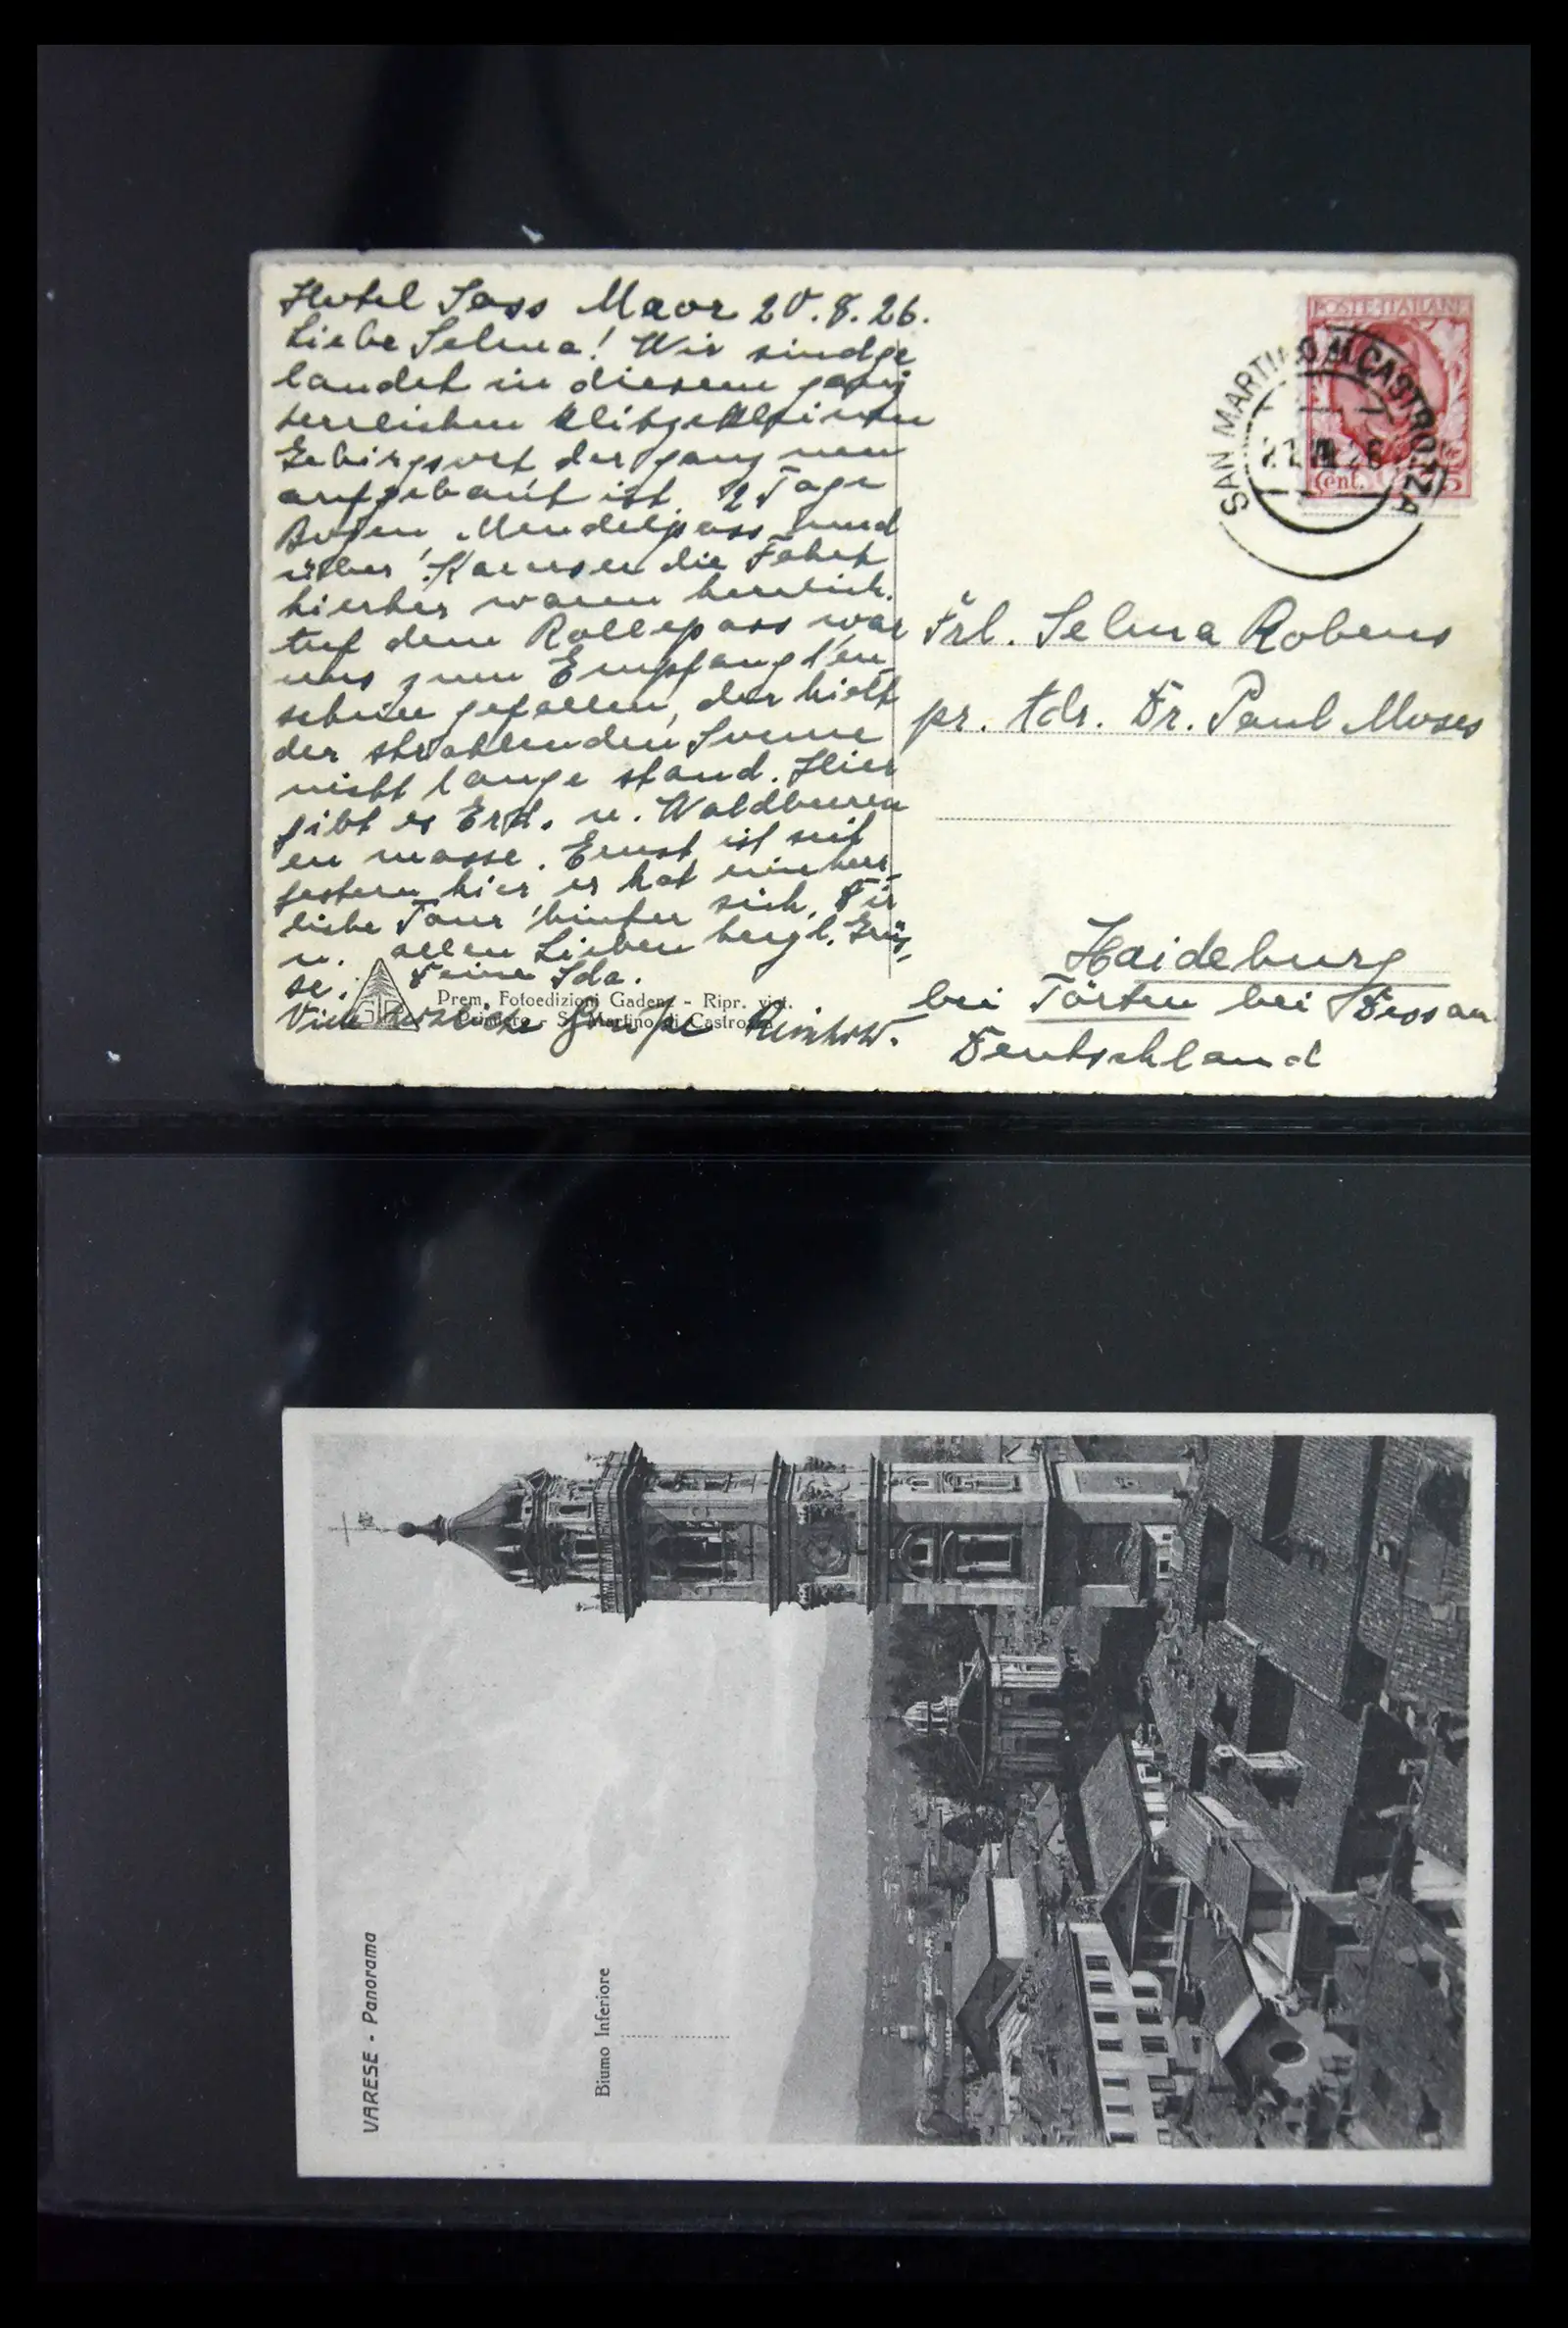 Hotel Sass Maor 20.8.26.
Liebe Selma! Wir sind ge
landet in diesem ganz
herrlichen klitzekleinen
Gebirgsort der ganz neu
aufgebaut ist. 2 Tage
Bozen, Mendelpass und
über Karersee die Fahrt
hierher waren herrlich.
Auf dem Rollepass war
uns zum Empfang
schnee gefallen, der
der strahlenden Sonne
nicht lange stand. Hier
gibt es Erd. u. Waldbeeren
en masse. Ernst ist seit
gestern hier, er hat eine herr-
liche Tour hinter sich. Dir
u. allen Lieben herzl. Grüs-
se. Deine Ida.
Viele Grüße
Prem. Fotoedizioni Gadenz - Ripr. viet.
Primiero - S. Martino di Castrozza
GP
POSTE ITALIANE
Cent. 75
SAN MARTINO DI CASTROZZA
Frl. Selma Robens
pr. Adr. Dr. Paul Moses
Haideburg
bei Törten bei Dessau
Deutschland
VARESE - Panorama
Biumo Inferiore